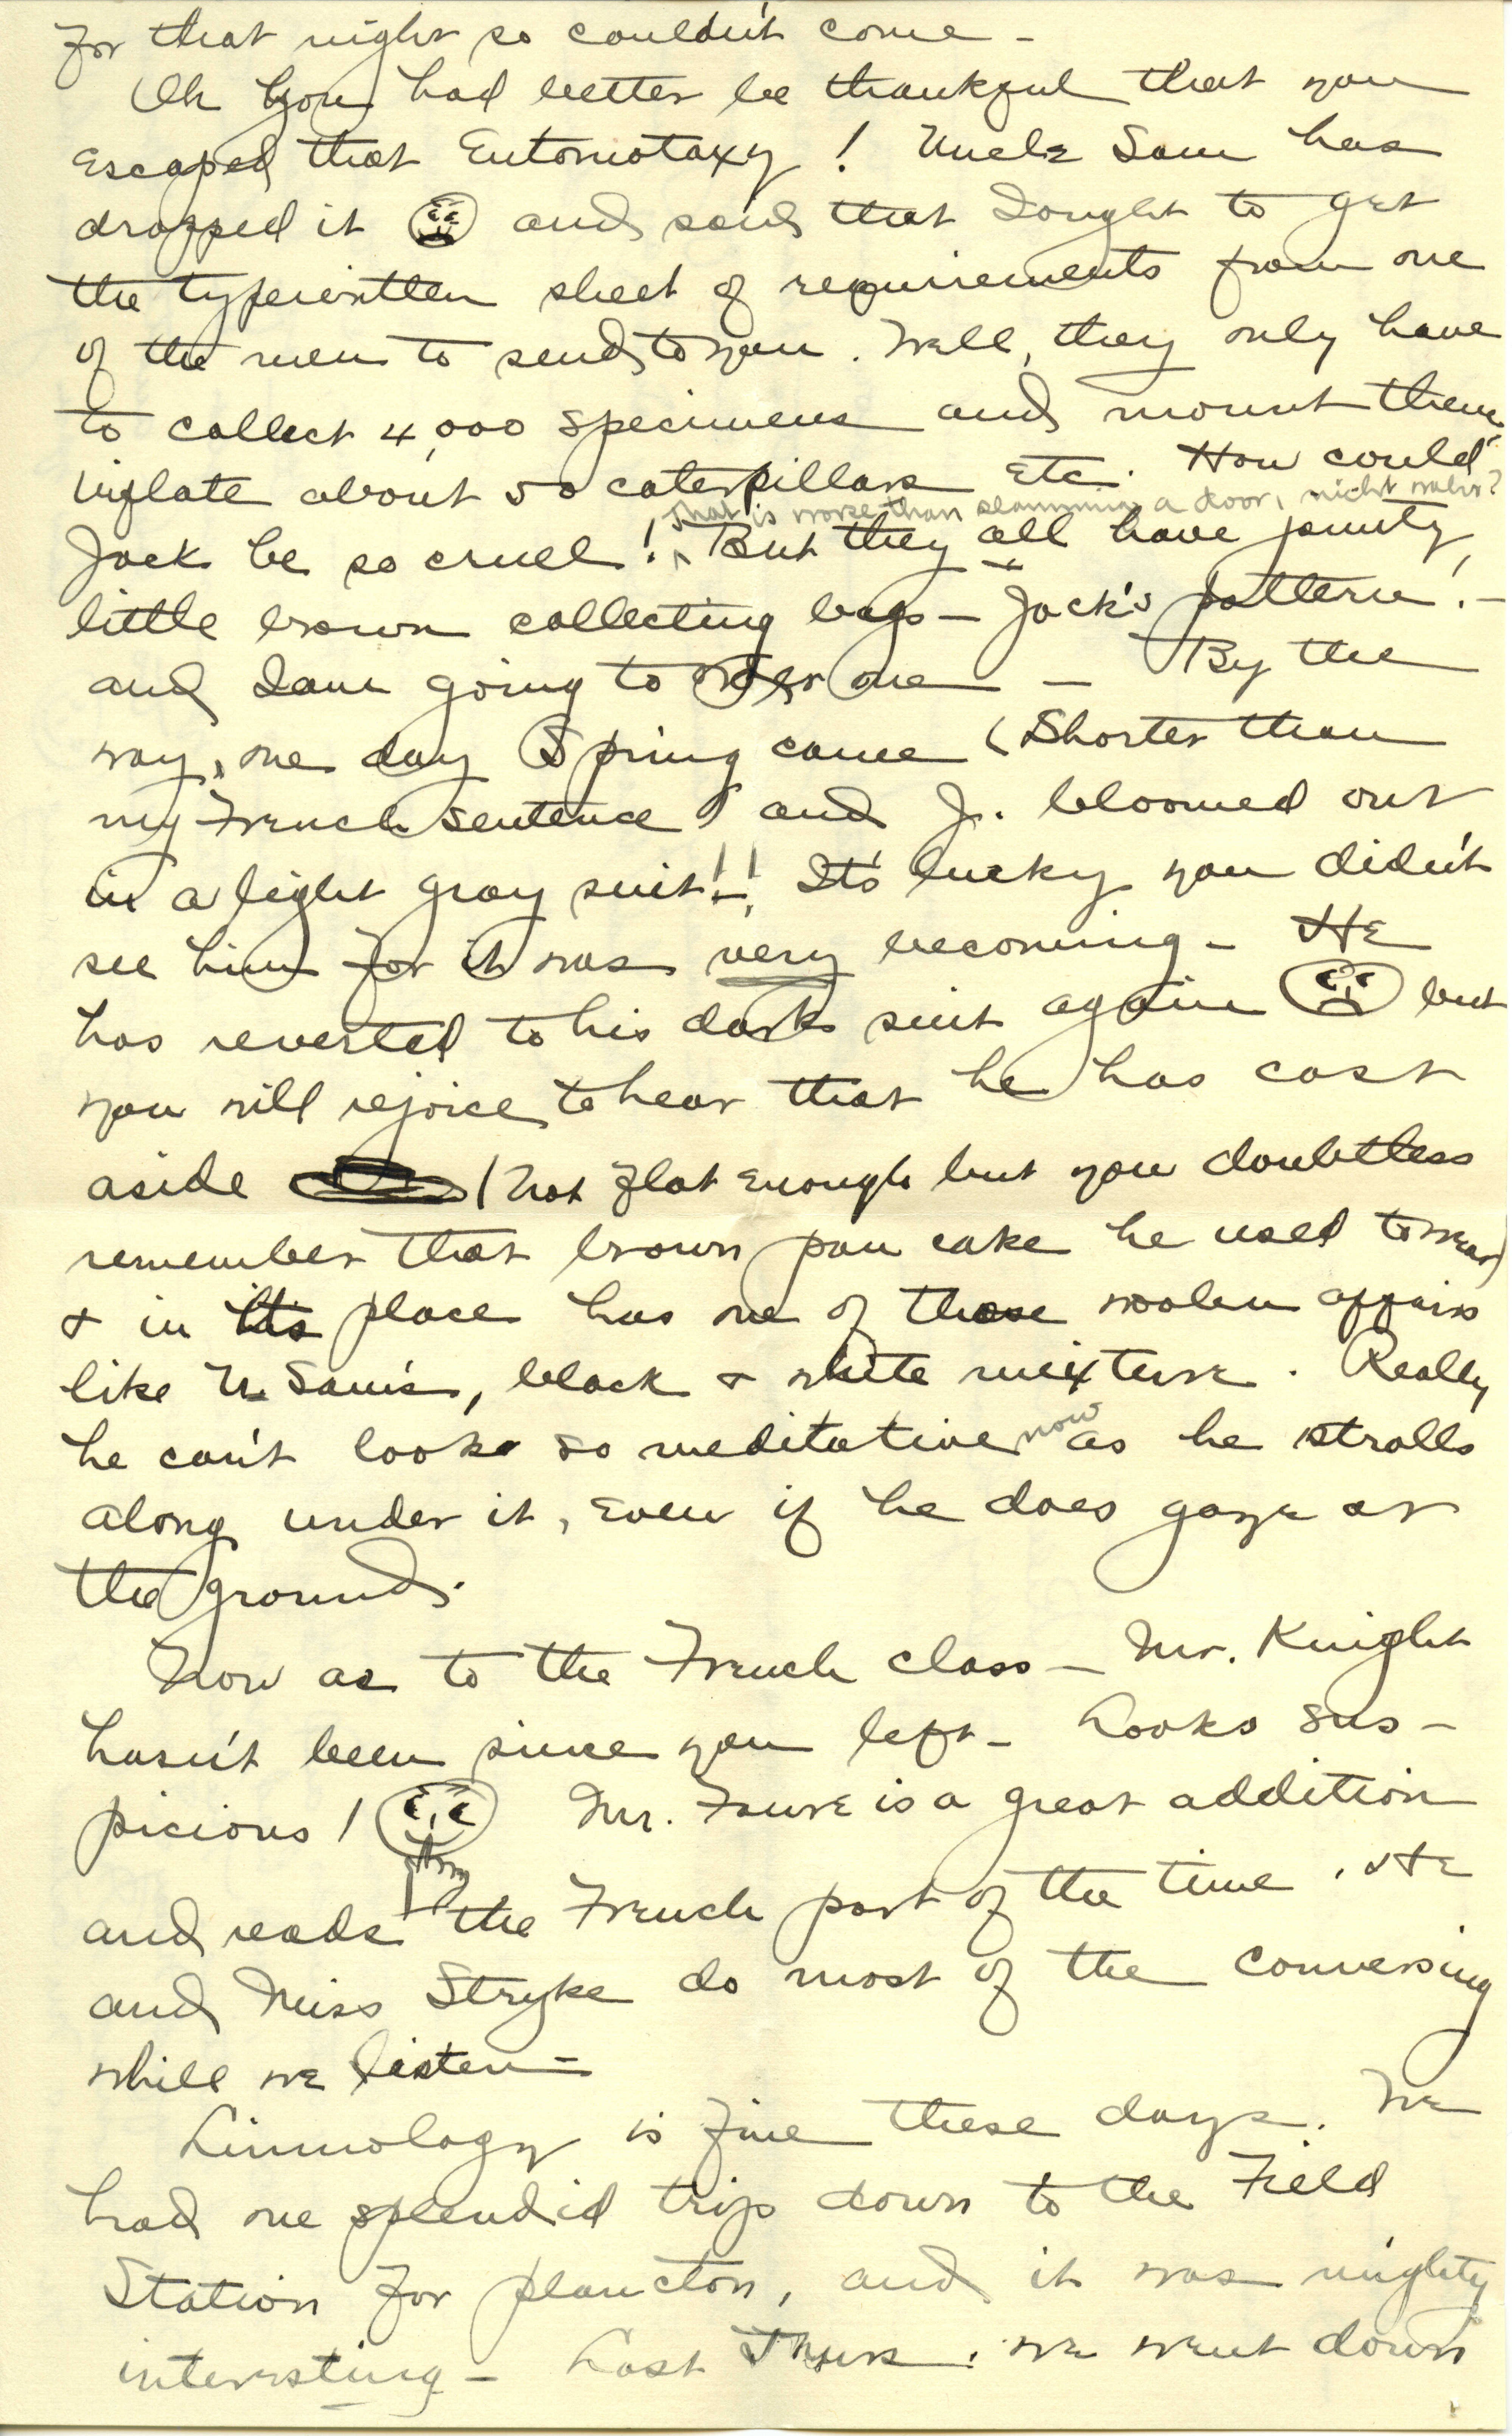 for that night so couldn't come -
Oh you had better be thankful that you
escaped that Entomotaxy! Uncle Sam has
dropped it and said that I ought to get
the typewritten sheet of requirements from one
of the men to send to you. Well, they only have
to collect 4,000 specimens and mount them,
inflate about 50 caterpillars etc. How could
that is worse than slamming a door, nicht wahr?
Jack be so cruel! ^ But they all have jaunty,
little brown collecting bags - Jack's pattern! -
and I am going to order one - By the
way, one day Spring came (Shorter than
my French sentence) and J. bloomed out
in a light gray suit!! It's lucky you didn't
see him for it was very becoming - He
has reverted to his dark suit again but
you will rejoice to hear that he has cast
aside (not flat enough but you doubtless
remember that brown pan cake he used to wear)
& in its place has one of those woolen affairs
like U. Sam's, black & white mixture. Really
he can't look so meditative now as he strolls
along under it, even if he does gaze at
the ground.
Now as to the French class - Mr. Knight
hasn't been since you left - Looks sus-
picious! Mr. Faure is a great addition
and reads the French part of the time. He
and Miss Stryke do most of the conversing
while we listen -
Limnology is fine these days. We
had one splendid trip down to the Field
Station for plancton, and it was mighty
interesting - Last Thurs. we went down